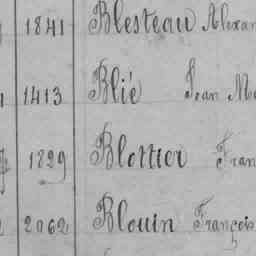 1841 Blesteau Alexan
1413 Blié Jean Ma
1829 Blottier Fran
2062 Blouin François